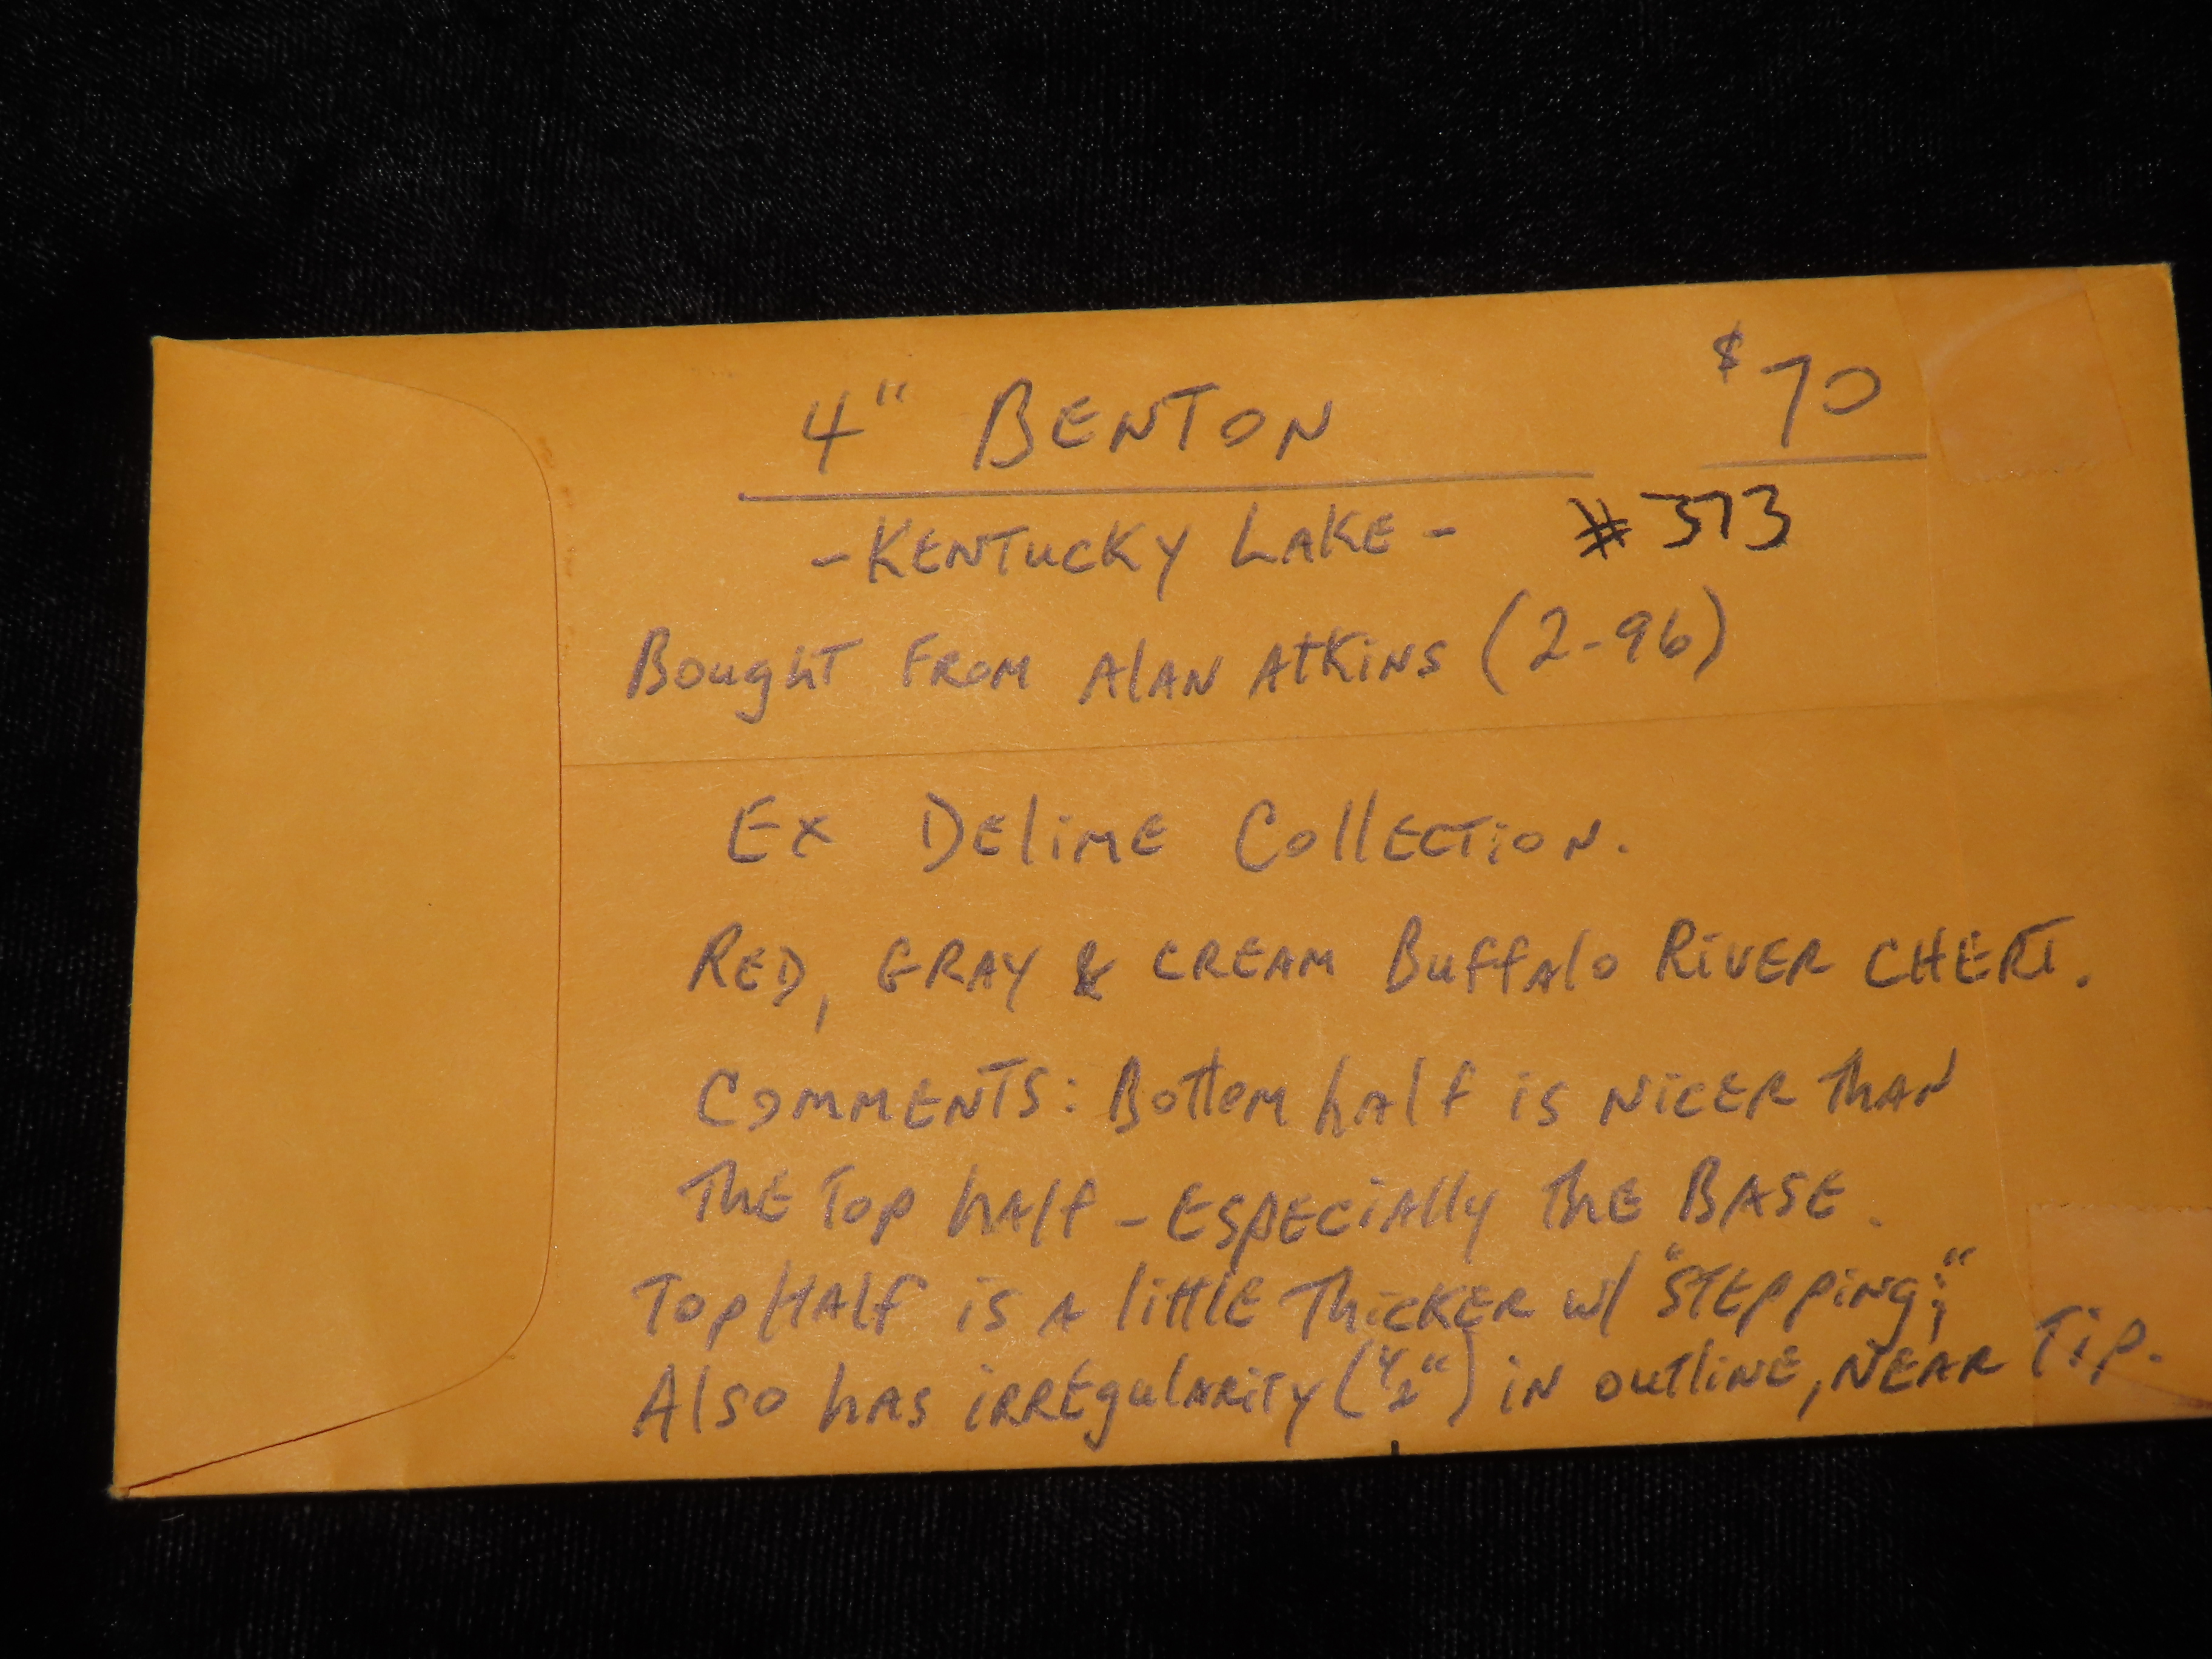 4" BENTON $70
-KENTUCKY LAKE- #373
Bought FROM AlAN AtKiNS (2-96)
Ex DEliME CollECTiON.
RED, GRAY & CREAM BuffAlo RiVER CHERT.
COMMENTS: Bottom hAlf is NiCER ThAN
ThE Top hAlf - ESpECiAlly ThE BASE.
Top HAlf is A littlE ThiCKER w/ "STEppiNg;"
Also hAS iRREgulARiTy (1/2") iN outliNE, NEAR Tip.